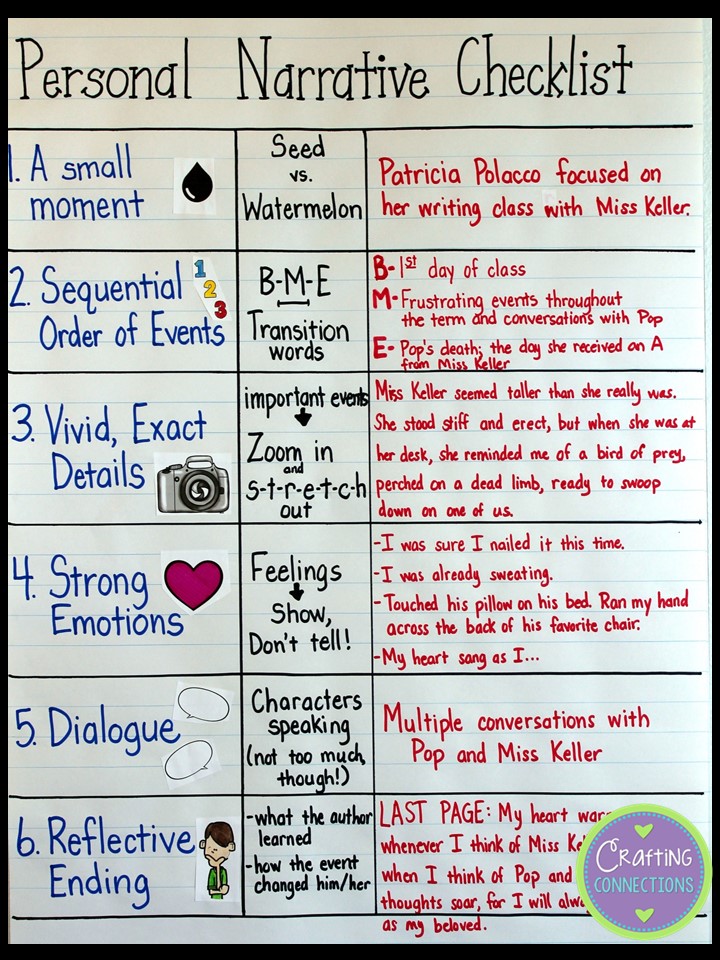 Personal Narrative Checklist
1. A small
moment
Seed
vs.
Watermelon
Patricia Polacco focused on
her writing class with Miss Keller.
2. Sequential
Order of Events
1
2
3
B-M-E
Transition
words
B- 1st day of class
M- Frustrating events throughout
the term and conversations with Pop
E- Pop's death; the day she received an A
from Miss Keller
3. Vivid, Exact
Details
important events
Zoom in
and
s-t-r-e-t-c-h
out
Miss Keller seemed taller than she really was.
She stood stiff and erect, but when she was at
her desk, she reminded me of a bird of prey,
perched on a dead limb, ready to swoop
down on one of us.
4. Strong
Emotions
Feelings
Show,
Don't tell!
-I was sure I nailed it this time.
-I was already sweating.
-Touched his pillow on his bed. Ran my hand
across the back of his favorite chair.
-My heart sang as I...
5. Dialogue
Characters
speaking
(not too much,
though!)
Multiple conversations with
Pop and Miss Keller
6. Reflective
Ending
-what the author
learned
-how the event
changed him/her
LAST PAGE: My heart
whenever I think of Miss
when I think of Pop and
thoughts soar, for I will
as my beloved.
CRAFTING
CONNECTIONS